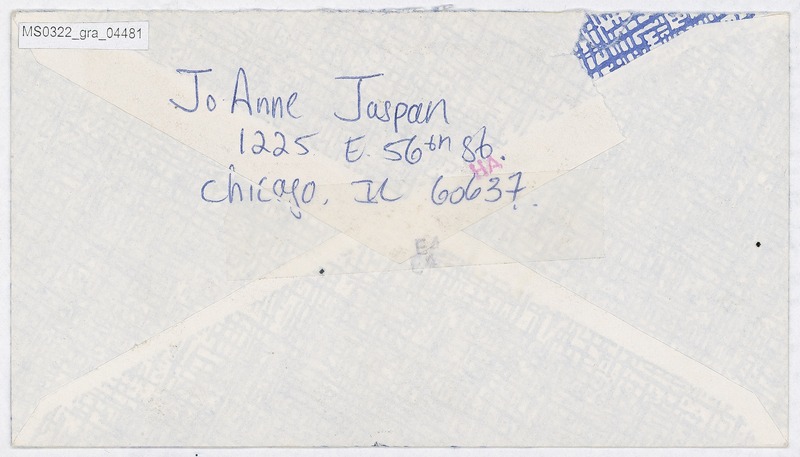 MS0322_gra_04481
Jo Anne Jaspan
1225 E. 56th St.
HA
Chicago, IL 60637